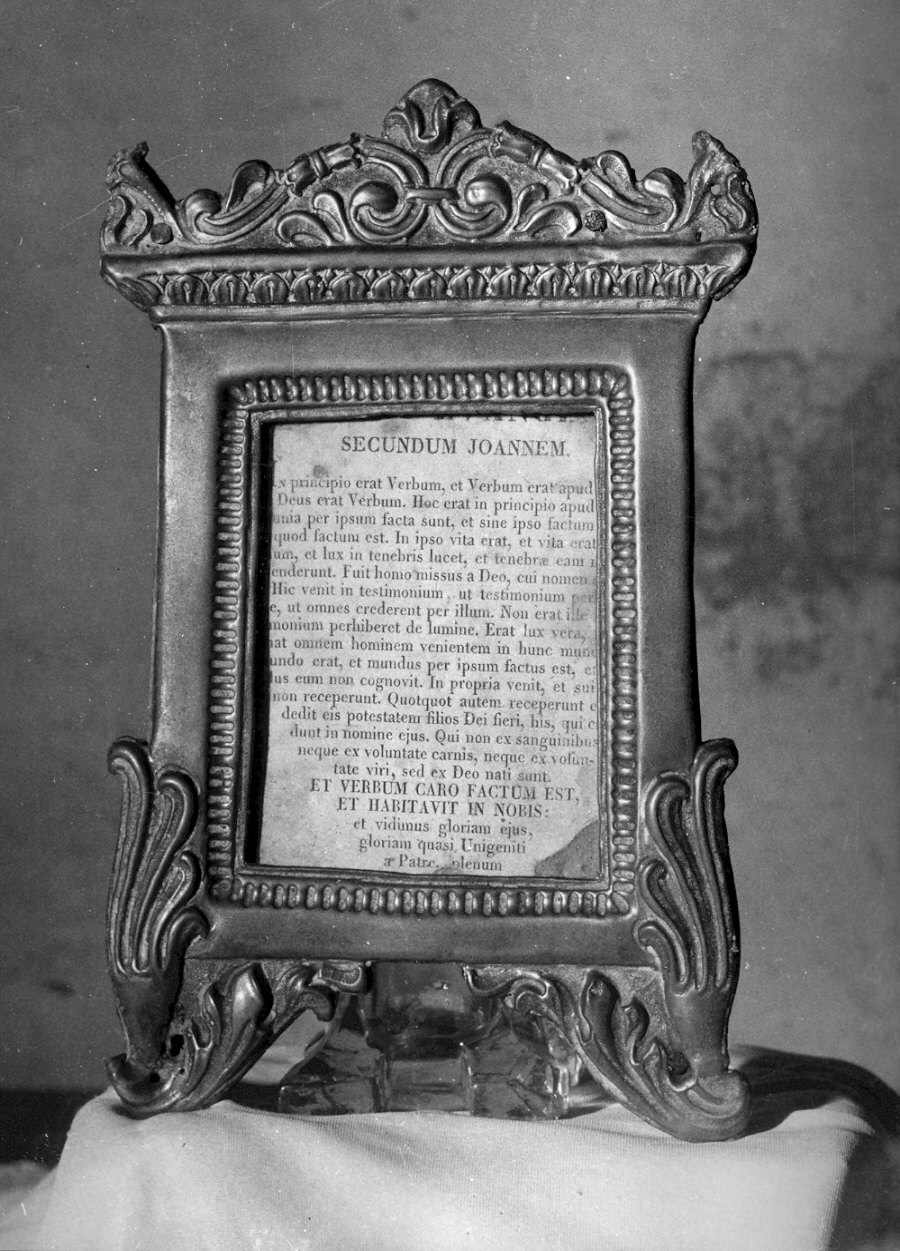 SECUNDUM JOANNEM.
IN principio erat Verbum, et Verbum erat apud
Deus erat Verbum. Hoc erat in principio apud
nia per ipsum facta sunt, et sine ipso factum
quod factum est. In ipso vita erat, et vita erat
um, et lux in tenebris lucet, et tenebræ eam
enderunt. Fuit homo missus a Deo, cui nomen
Hic venit in testimonium, ut testimonium per
e, ut omnes crederent per illum. Non erat ille
monium perhiberet de lumine. Erat lux vera,
nat omnem hominem venientem in hunc mun
undo erat, et mundus per ipsum factus est, e
us eum non cognovit. In propria venit, et sui
non receperunt. Quotquot autem receperunt e
dedit eis potestatem filios Dei fieri, his, qui c
dunt in nomine ejus. Qui non ex sanguinibus
neque ex voluntate carnis, neque ex volun-
tate viri, sed ex Deo nati sunt.
ET VERBUM CARO FACTUM EST,
ET HABITAVIT IN NOBIS:
et vidimus gloriam ejus,
gloriam quasi Unigeniti
a Patre, plenum